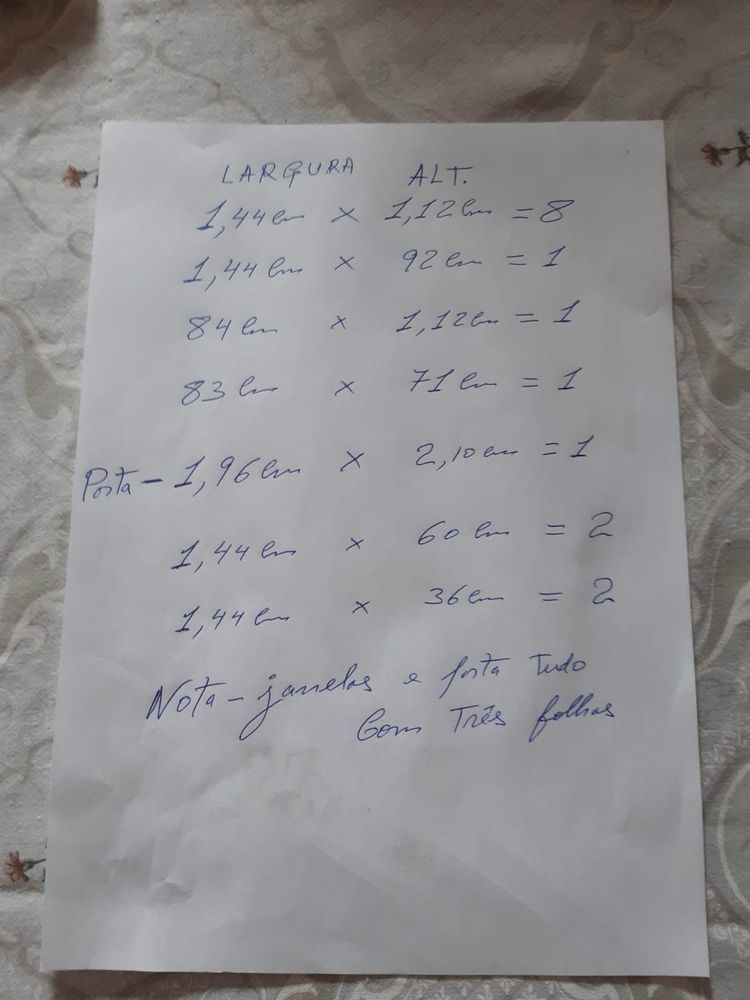 LARGURA ALT.
1,44cm x 1,12cm = 8
1,44cm x 92cm = 1
84cm x 1,12cm = 1
83cm x 71cm = 1
Porta - 1,96cm x 2,10cm = 1
1,44cm x 60cm = 2
1,44cm x 36cm = 2
Nota - janelas e porta tudo
Com Três folhas